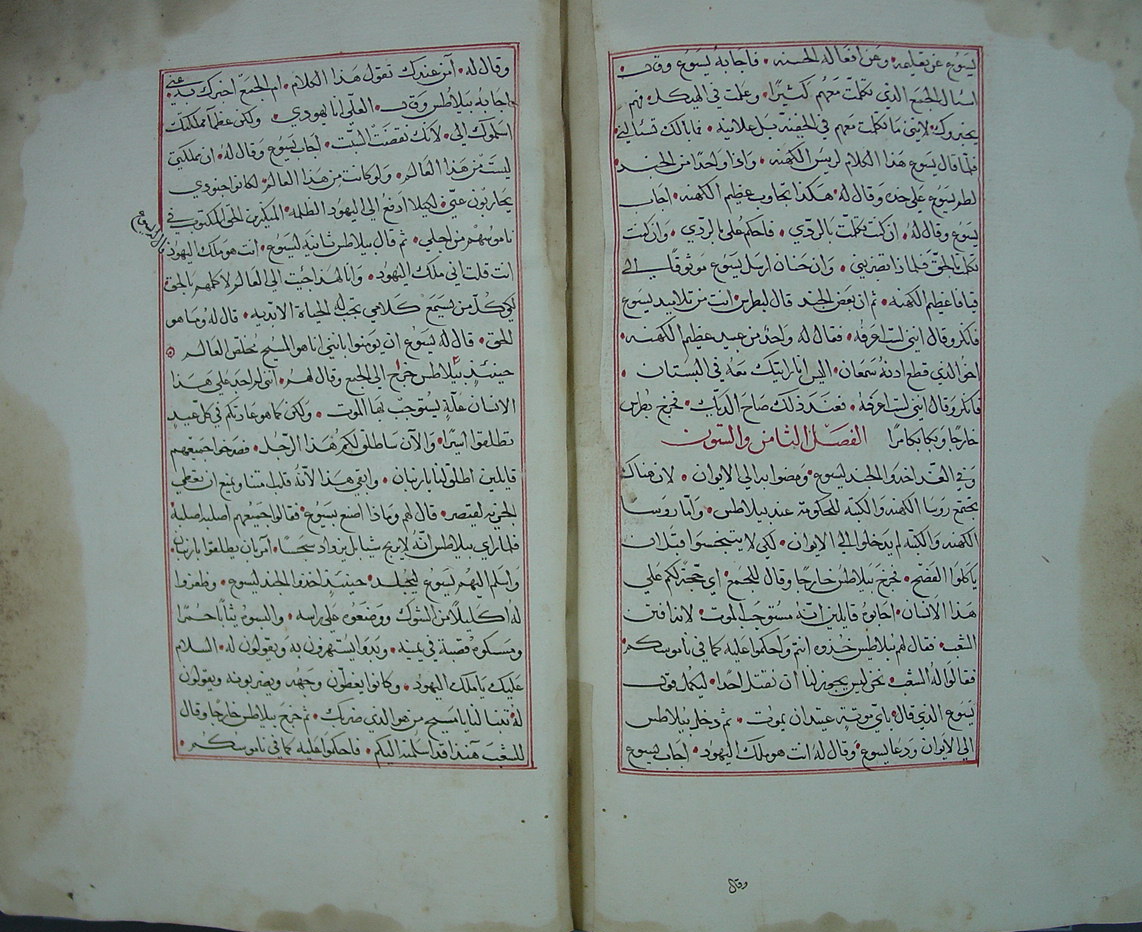 يسوع عن تعليمه • وعن افعاله الحسنه • فاجابه يسوع وقال
اسال الجمع الذي تكلمت معهم كثيرًا • وعلمت في الهيكل • فهم
يخبروك • لانني ما تكلمت معهم في الخفيه بل علانيه • فما بالك تسالني
فلما قال يسوع هذا الكلام لريس الكهنه • واذا واحدًا من الجند
لطم يسوع علي خده وقال له • هكذا تجاوب عظيم الكهنه • اجاب
يسوع وقال له • ان كنت تكلمت بالردي • فاحكم علي بالردي • وان كنت
تكلمت الحق فلماذا تضربني • وان حنان ارسل يسوع موثوقًا الي
قيافا عظيم الكهنه • ثم ان بعض الجند قال لبطرس • انت من تلاميد يسوع
فانكر وقال انني لست اعرفه • فقال له واحد من عبيد عظيم الكهنه •
اخو الذي قطع ادنه سمعان • اليس انا رايتك معه في البستان •
فانكر وقال انني لست اعرفه • فعند ذلك صاح الديك • فخرج بطرس
خارجًا وبكا بكا مرا الفصل الثامن والستون
وفي الغد اخدوا الجند ليسوع • ومضوا به الي الايوان • لان هناك
يجتمع روسا الكهنه والكتبه للحكومة عند بيلاطس • واما روسا
الكهنه والكتبه لم يدخلوا الي الايوان • لكي لا يتنجسوا قبل ان
ياكلوا الفصح • فخرج بيلاطس خارجًا وقال للجمع • اي حجة لكم علي
هذا الانسان • اجابوه قايلين انه مستوجب الموت • لانه افتن
الشعب • فقال لهم بيلاطس خذوه انتم واحكموا عليه كما في ناموسكم •
فقالوا له الشعب • نحن ليس يجوز لنا ان نقتل احدًا • ليكمل قول
يسوع الذي قال • باي موته عتيد ان يموت • ثم دخل بيلاطس
الي الايوان ودعا يسوع • وقال له انت هو ملك اليهود • اجاب يسوع
وقال
وقال له • أمن عندك تقول هذا الكلام • ام الجمع اخبرك به عني
اجابه بيلاطس وقال • العلي انا يهودي • ولكن عظما مملكتك
اسلموك الي • لانك نقضت السبت • اجاب يسوع وقال له • ان مملكتي
ليست من هذا العالم • ولو كانت من هذا العالم • لكانوا جنودي
يحاربون عني • لكيلا ادفع الي اليهود الظلمه • المنكرين الحق المكتوب في
ناموسهم من اجلي • ثم قال بيلاطس ثانية ليسوع • انت هو ملك اليهود
قال له يسوع
انت قلت اني ملك اليهود • وانا لهذا جيت الي العالم لاكلمهم بالحق
لكي كل من يستمع كلامي تجب له الحياة الابديه • قال له وما هو
الحق • قال له يسوع ان يومنوا بانني انا هو المسيح مخلص العالم
حينئد بيلاطس خرج الي الجمع وقال لهم • انني لم اجد علي هذا
الانسان علة يستوجب بها الموت • ولكن كما هو عادتكم في كل عيد
تطلقوا اسيرًا • والآن ساطلق لكم هذا الرجل • فصرخوا جميعهم
قايلين اطلق لنا بارنبان • وابقي هذا لانه قلب متنا ويمنع ان نعطي
الجزيه لقيصر • قال لهم وماذا اصنع بيسوع • فقالوا جميعهم اصلبه اصلبه
فلما راي بيلاطس انه لا يربح شيا بل يزداد سجسًا • أمر بان يطلقوا بارنبان
واسلم اليهم يسوع ليجلد • حينئد اخدوا الجند ليسوع • وظفروا
له اكليلًا من الشوك ووضعوه علي راسه • والبسوه ثيابًا حمرًا
ومسكوه قصبة في يمينه • وبدوا يستهزون به ويقولون له • السلام
عليك يا ملك اليهود • وكانوا يغطون وجهه ويضربونه ويقولون
له • تنبا لنا يا مسيح من هو الذي ضربك • ثم خرج بيلاطس خارجًا وقال
للشعب هنذا قد اسلمته اليكم • فاحكموا عليه كما في ناموسكم •